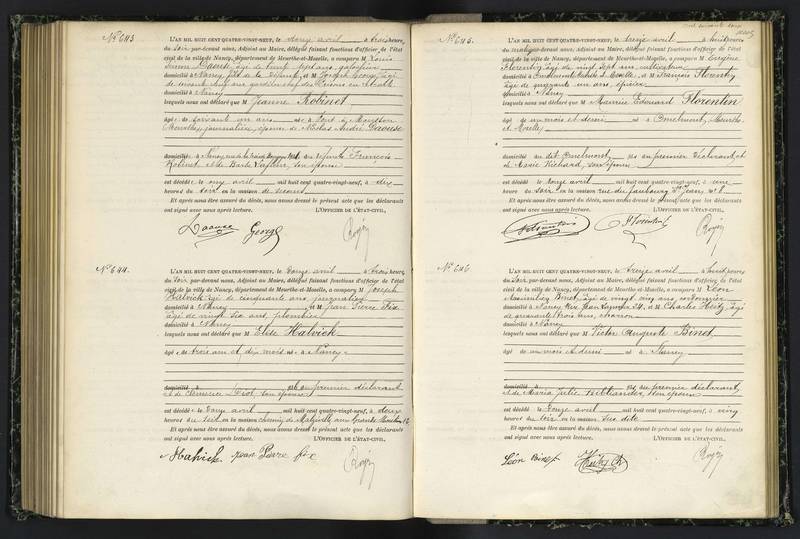 N° 643
L'AN MIL HUIT CENT QUATRE-VINGT-NEUF, le douze avril à trois heures
du soir par-devant nous, Adjoint au Maire, délégué faisant fonctions d'officier de l'état
civil de la ville de Nancy, département de Meurthe-et-Moselle, a comparu M Louis
âgé de trente sept ans,
domicilié à Nancy fils de la défunte et M Joseph George âgé
de ans gardien chef des
domicilié à Nancy
lesquels nous ont déclaré que M Jeanne Robinet
âgée de soixante un ans née à Pont à Mousson
Meurthe, journalière, épouse de Nicolas André
domiciliée à Nancy du défunts François
Robinet et de Barbe son épouse
est décédée le onze avril mil huit cent quatre-vingt-neuf, à dix
heures du soir en la maison de secours
Et après nous être assuré du décès, nous avons dressé le présent acte que les déclarants
ont signé avec nous après lecture. L'OFFICIER DE L'ÉTAT-CIVIL,
George
N° 644
L'AN MIL HUIT CENT QUATRE-VINGT-NEUF, le douze avril à trois heures
du soir par-devant nous, Adjoint au Maire, délégué faisant fonctions d'officier de l'état
civil de la ville de Nancy, département de Meurthe-et-Moselle, a comparu M Joseph
Halvick âgé de cinquante ans, journalier
domicilié à Nancy et M Jean Pierre Fix
âgé de vingt six ans, plombier
domicilié à Nancy
lesquels nous ont déclaré que M Elise Halvick
âgée de trois ans et dix mois née à Nancy
domiciliée à fille du premier déclarant
et de Clémence son épouse
est décédée le douze avril mil huit cent quatre-vingt-neuf, à deux
heures du soir en la maison chemin de Malzéville aux Grands Moulins 12
Et après nous être assuré du décès, nous avons dressé le présent acte que les déclarants
ont signé avec nous après lecture. L'OFFICIER DE L'ÉTAT-CIVIL,
Halvick jean Pierre fix
N° 645
L'AN MIL HUIT CENT QUATRE-VINGT-NEUF, le treize avril à huit heures
du matin par-devant nous, Adjoint au Maire, délégué faisant fonctions d'officier de l'état
civil de la ville de Nancy, département de Meurthe-et-Moselle, a comparu M Eugène
Florentin âgé de vingt sept ans, cultivateur
domicilié à Omelmont Meurthe et Moselle et M François Florentin
âgé de quarante un ans, épicier
domicilié à Nancy
lesquels nous ont déclaré que M Maurice Edouard Florentin
âgé de un mois et demi né à Omelmont, Meurthe
et Moselle
domicilié au dit Omelmont, fils du premier déclarant, et
de Marie Richard, son épouse
est décédé le douze avril mil huit cent quatre-vingt-neuf, à une
heure du soir en la maison rue du faubourg St Jean n° 6
Et après nous être assuré du décès, nous avons dressé le présent acte que les déclarants
ont signé avec nous après lecture. L'OFFICIER DE L'ÉTAT-CIVIL,
Florentin F Florentin
N° 646
L'AN MIL HUIT CENT QUATRE-VINGT-NEUF, le treize avril à huit heures
du par-devant nous, Adjoint au Maire, délégué faisant fonctions d'officier de l'état
civil de la ville de Nancy, département de Meurthe-et-Moselle, a comparu M Léon
Maximilien Binet âgé de vingt cinq ans cordonnier
domicilié à Nancy Rue 24, et M Charles âgé
de quarante trois ans, charron
domicilié à Nancy
lesquels nous ont déclaré que M Victor Auguste Binet
âgé de un mois et demi né à Nancy
domicilié à fils du premier déclarant,
et de Maria Julie son épouse
est décédé le douze avril mil huit cent quatre-vingt-neuf, à cinq
heures du soir en la maison sus dite
Et après nous être assuré du décès, nous avons dressé le présent acte que les déclarants
ont signé avec nous après lecture. L'OFFICIER DE L'ÉTAT-CIVIL,
Léon Binet